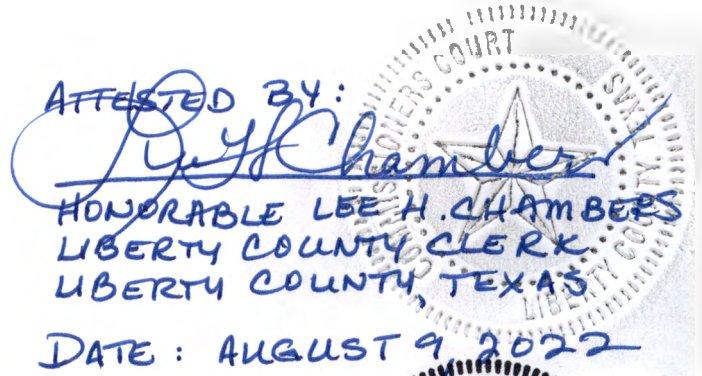 ATTESTED BY:
Lee H Chambers
HONORABLE LEE H. CHAMBERS
LIBERTY COUNTY CLERK
LIBERTY COUNTY, TEXAS
DATE: AUGUST 9, 2022
COMMISSIONERS COURT
LIBERTY COUNTY, TEXAS